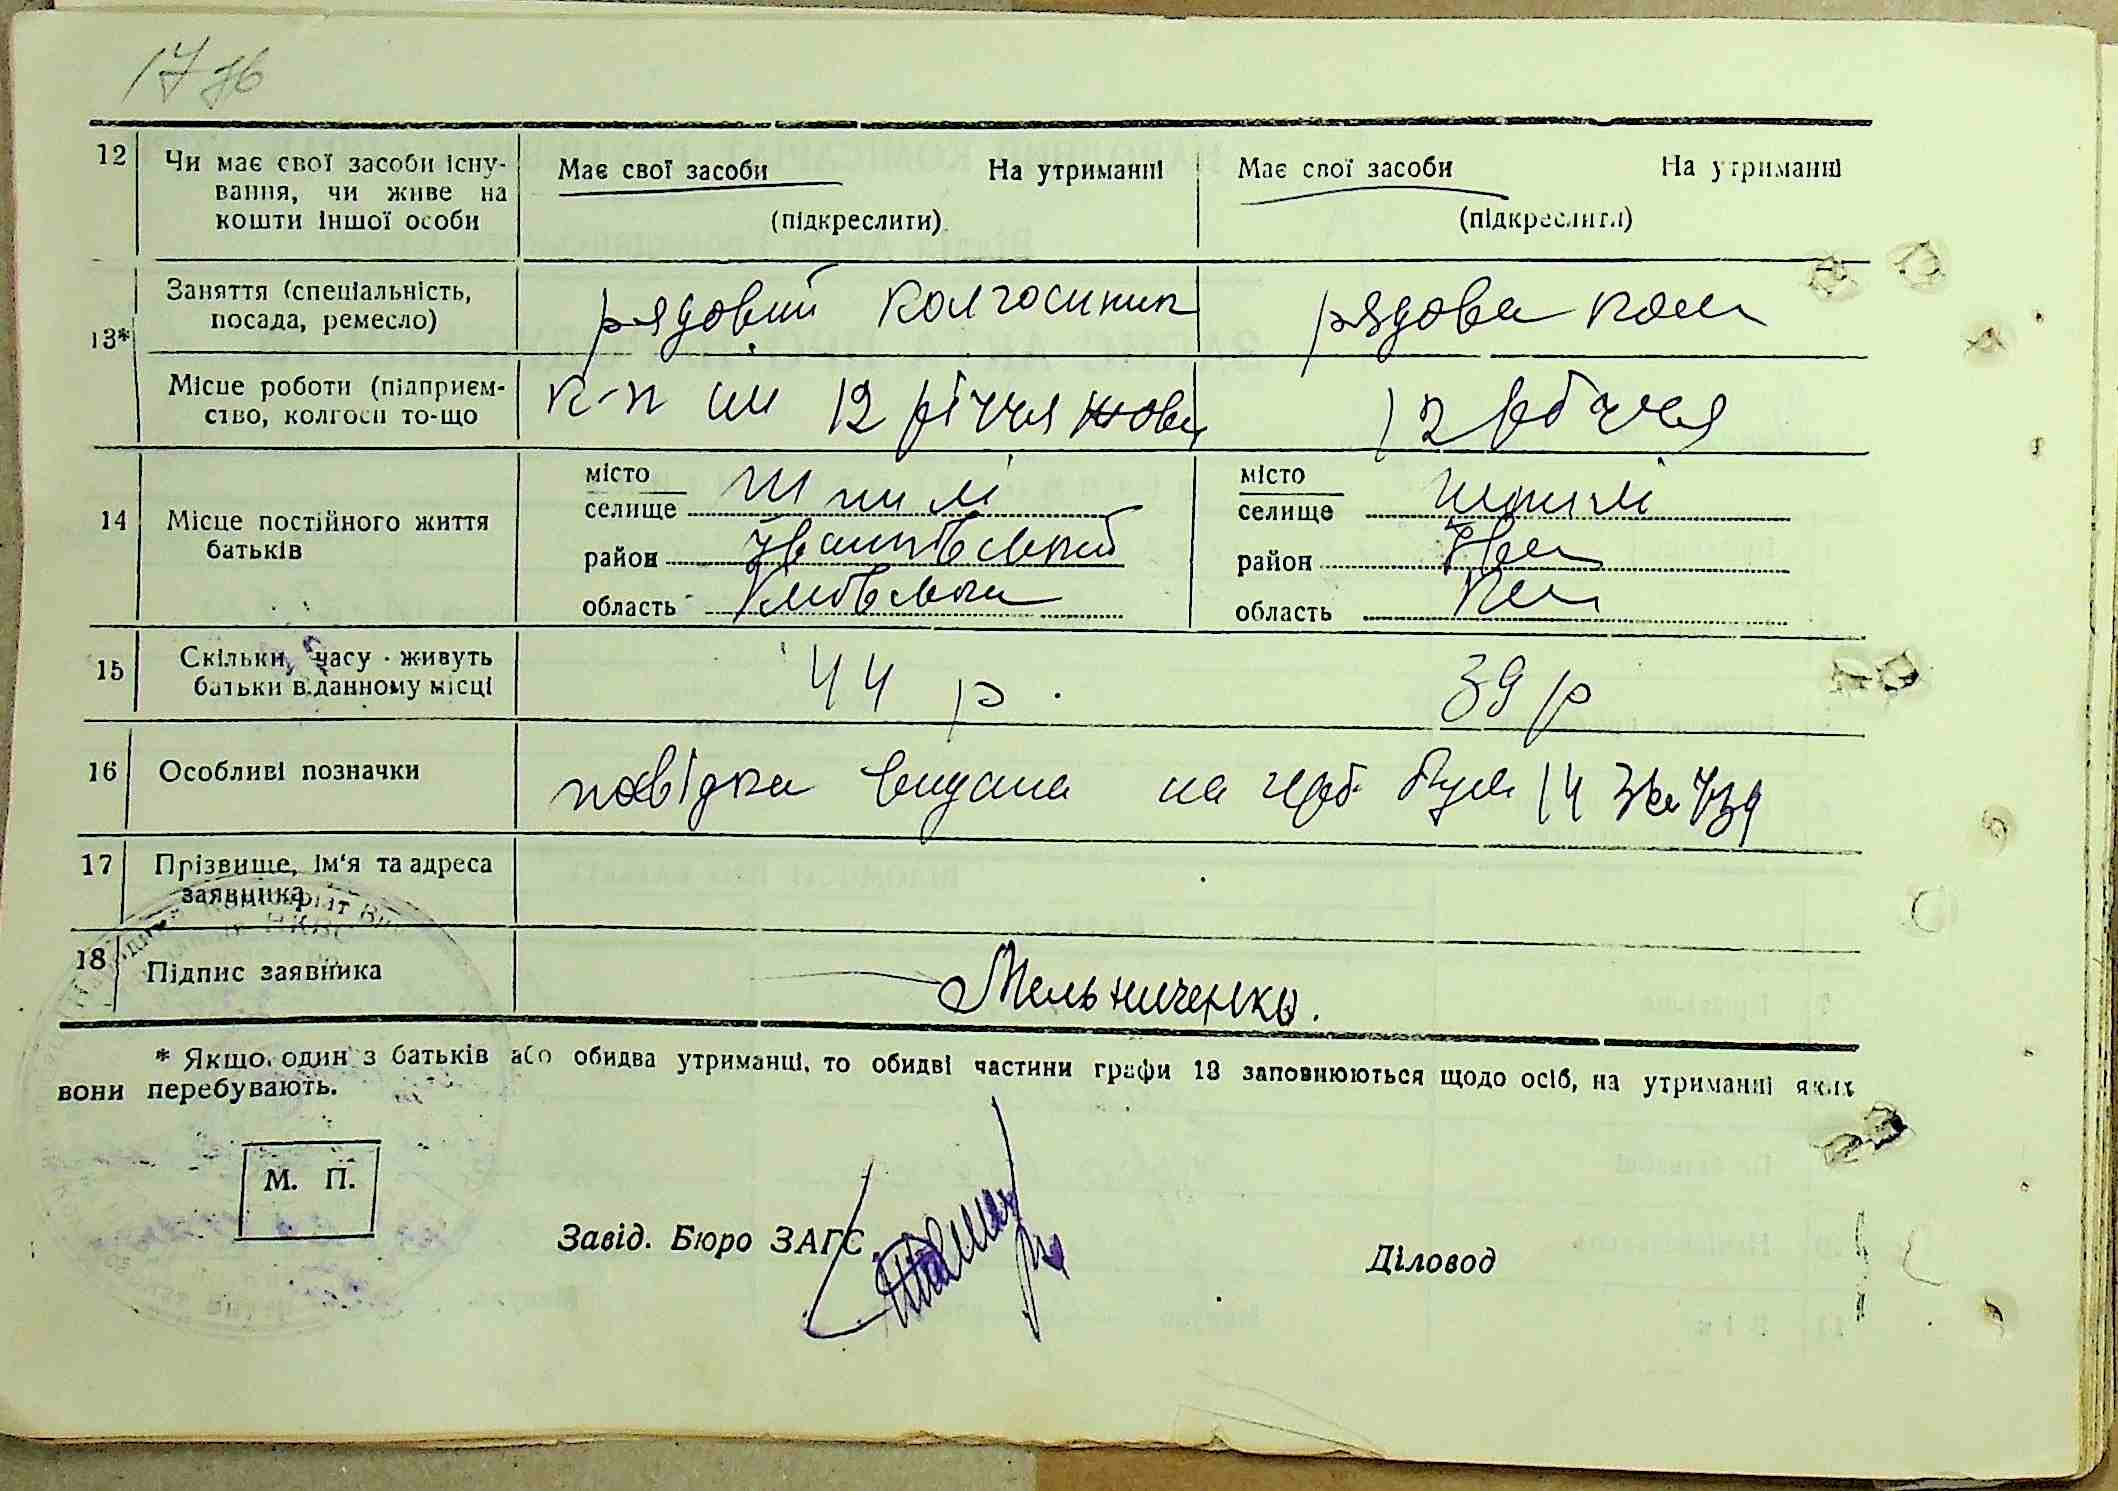 17 зв
12 Чи має свої засоби існу-
вання, чи живе на
кошти іншої особи
Має свої засоби На утриманні
(підкреслити)
Має свої засоби На утриманні
(підкреслити)
13* Заняття (спеціальність,
посада, ремесло)
рядовий колгоспник
рядова кол
Місце роботи (підприєм-
ство, колгосп то-що
к-п им 12 річчя жовт
12 річчя
14 Місце постійного життя
батьків
місто
селище Шпилі
район Іванківський
область Київська
місто
селище Шпилі
район Іван
область Київ
15 Скільки часу живуть
батьки в данному місці
44 р.
39 р
16 Особливі позначки
повідка видана на герб 14
17 Прізвище, Ім'я та адреса
заявника
18 Підпис заявника
Мельниченко.
* Якщо один з батьків або обидва утриманці, то обидві частини графи 13 заповнюються щодо осіб, на утриманні яких
вони перебувають.
М. П.
Завід. Бюро ЗАГС
Діловод